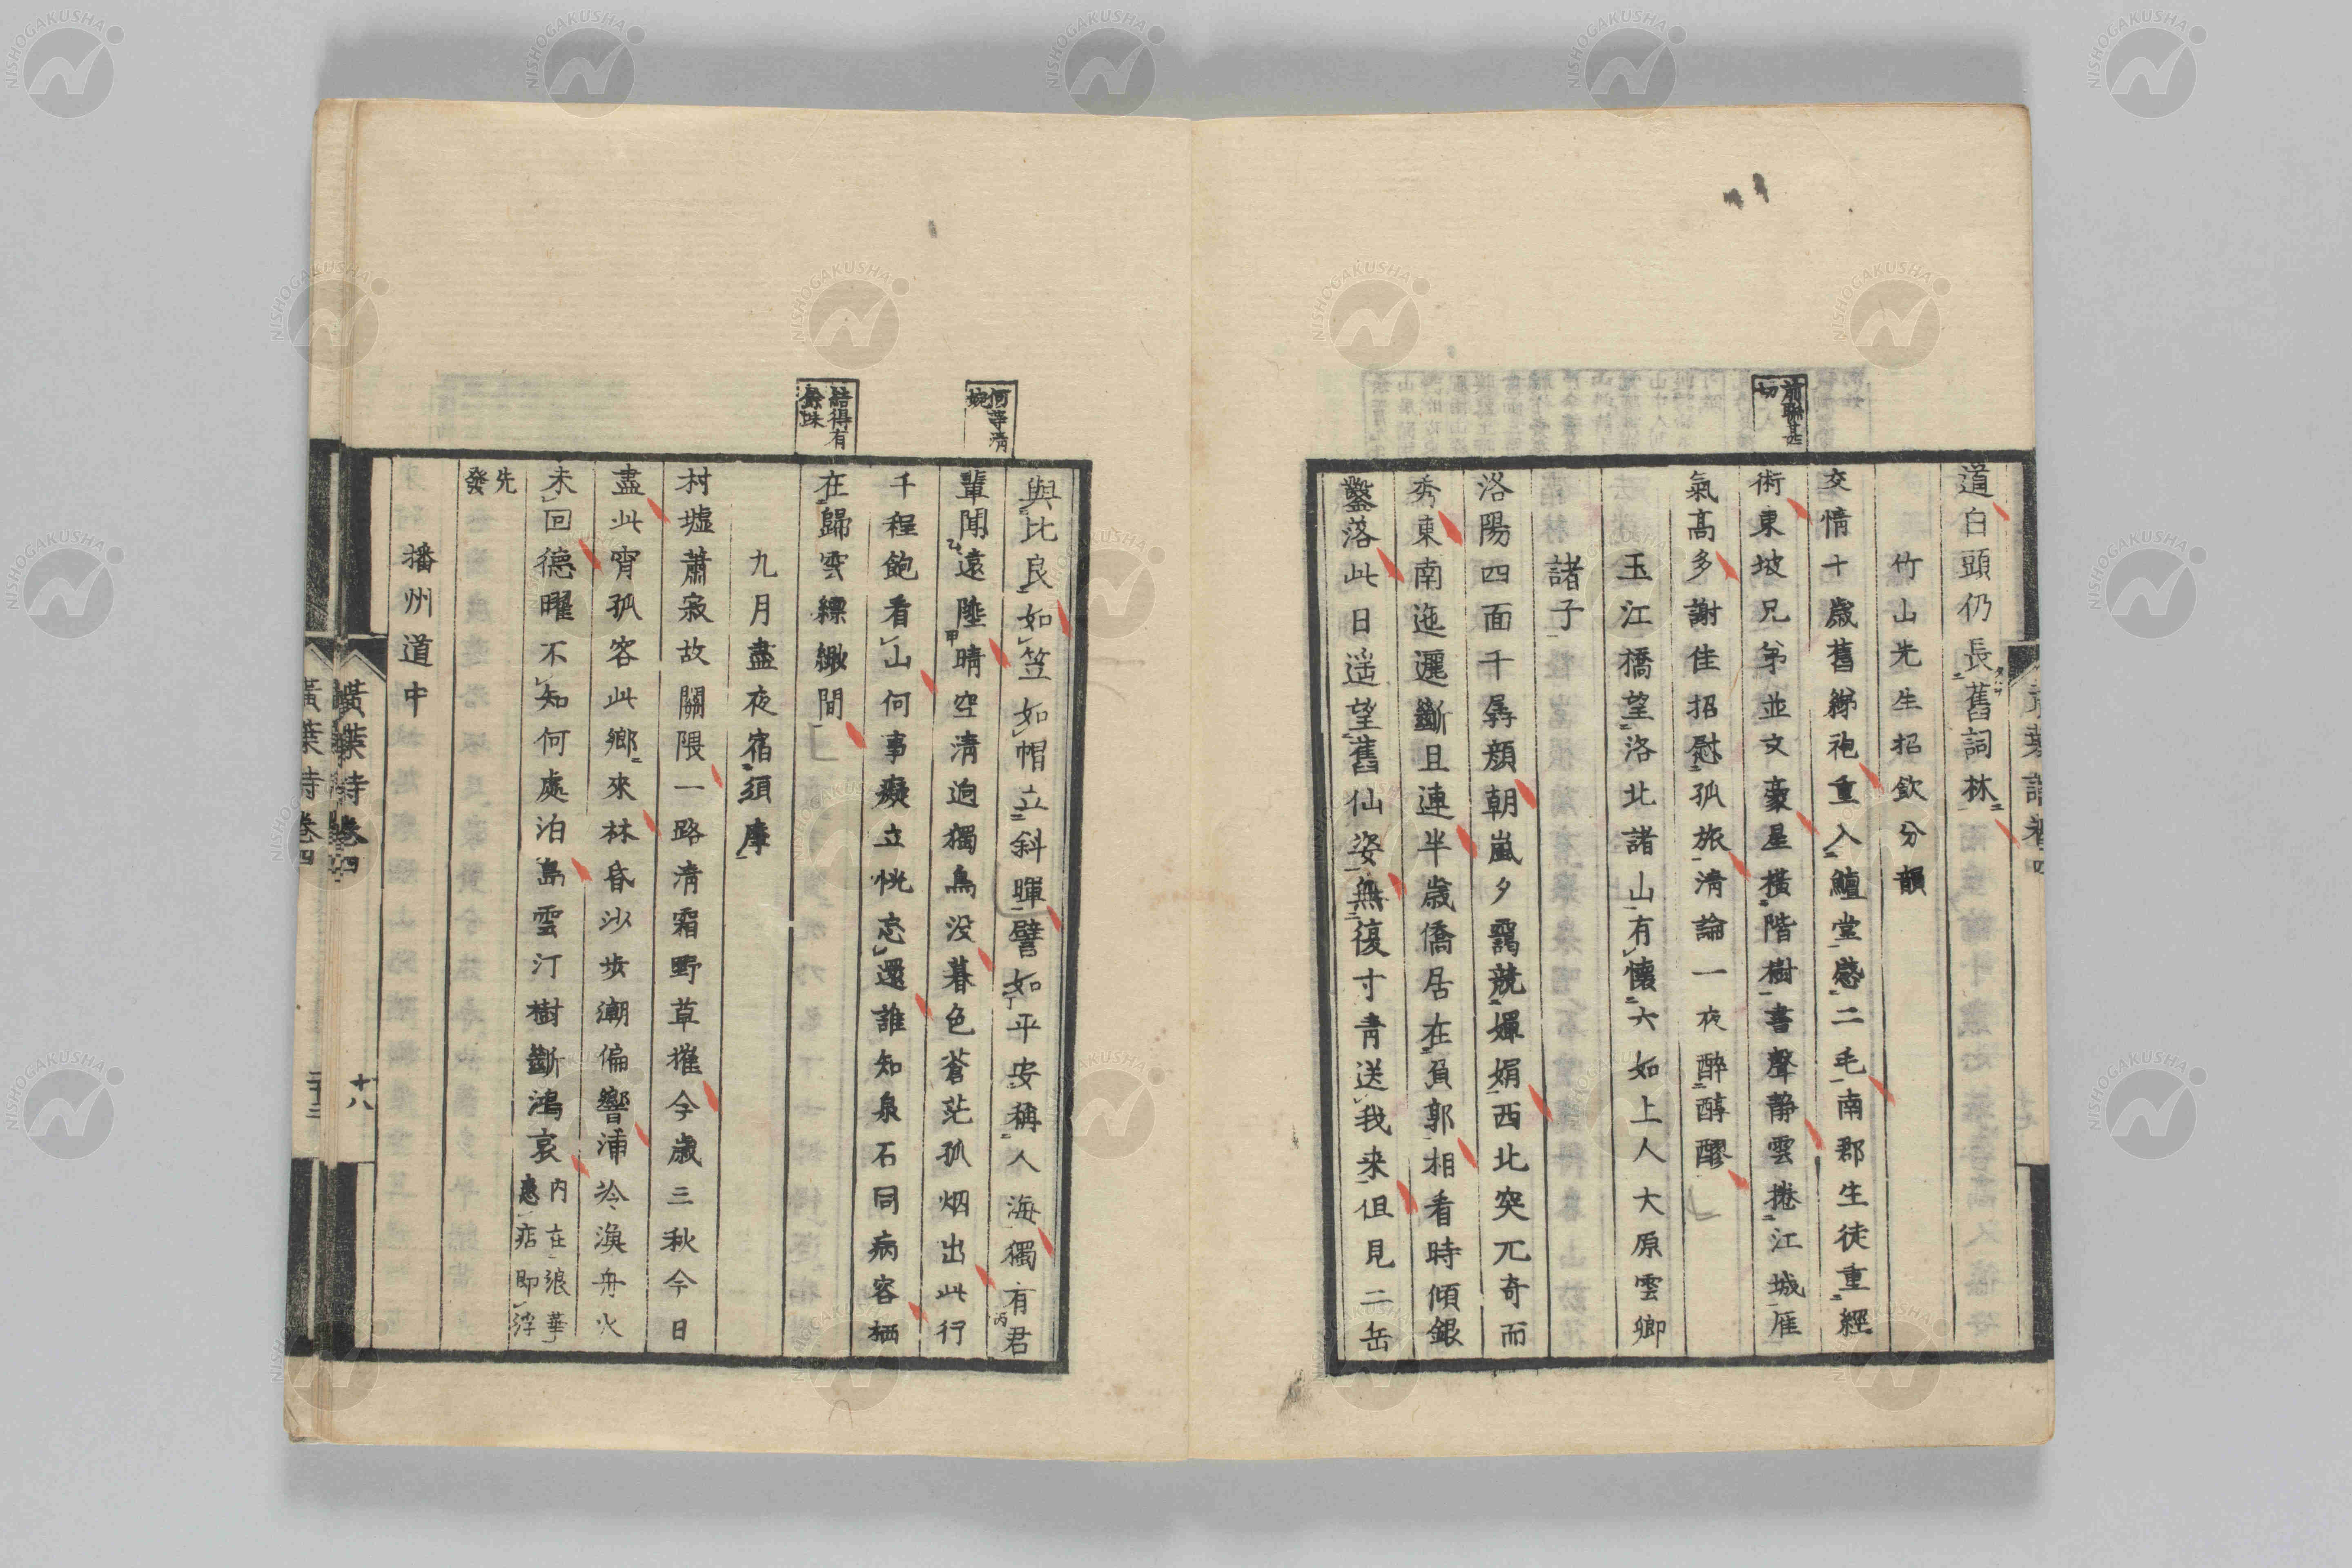 道白頭仍長舊詞林
竹山先生招飲分韻
前聯甚
切
交情十歲舊綈袍重入鱣堂感二毛南郡生徒重經
術東坡兄弟並文豪星橫階樹書聲靜雲捲江城雁
氣高多謝佳招慰孤旅清論一夜醉醇醪
玉江橋望洛北諸山有懷六如上人大原雲卿
諸子
洛陽四面千鬟顏朝嵐夕靄競嬋娟西北突兀奇而
秀東南迤邐斷且連半歲僑居在負郭相看時傾銀
鑿落此日遥望舊仙姿無復寸青送我来但見二岳
何等清
婉
與比良如笠如帽立斜暉譬如平安稱人海獨有君
輩聞遠陸晴空清迥獨鳥没暮色蒼茫孤烟出此行
千程飽看山何事癡立恍忘還誰知泉石同病容栖
結得有
餘味
在歸雲縹緲間
九月盡夜宿須摩
村墟蕭寂故關隈一路清霜野草摧今歲三秋今日
盡此宵孤客此鄉來林昏沙步潮偏響浦冷漁舟火
未回德曜不知何處泊島雲汀樹斷鴻哀
內在浪華
患痁即浮
先
發
播州道中
黃葉詩卷四
十八